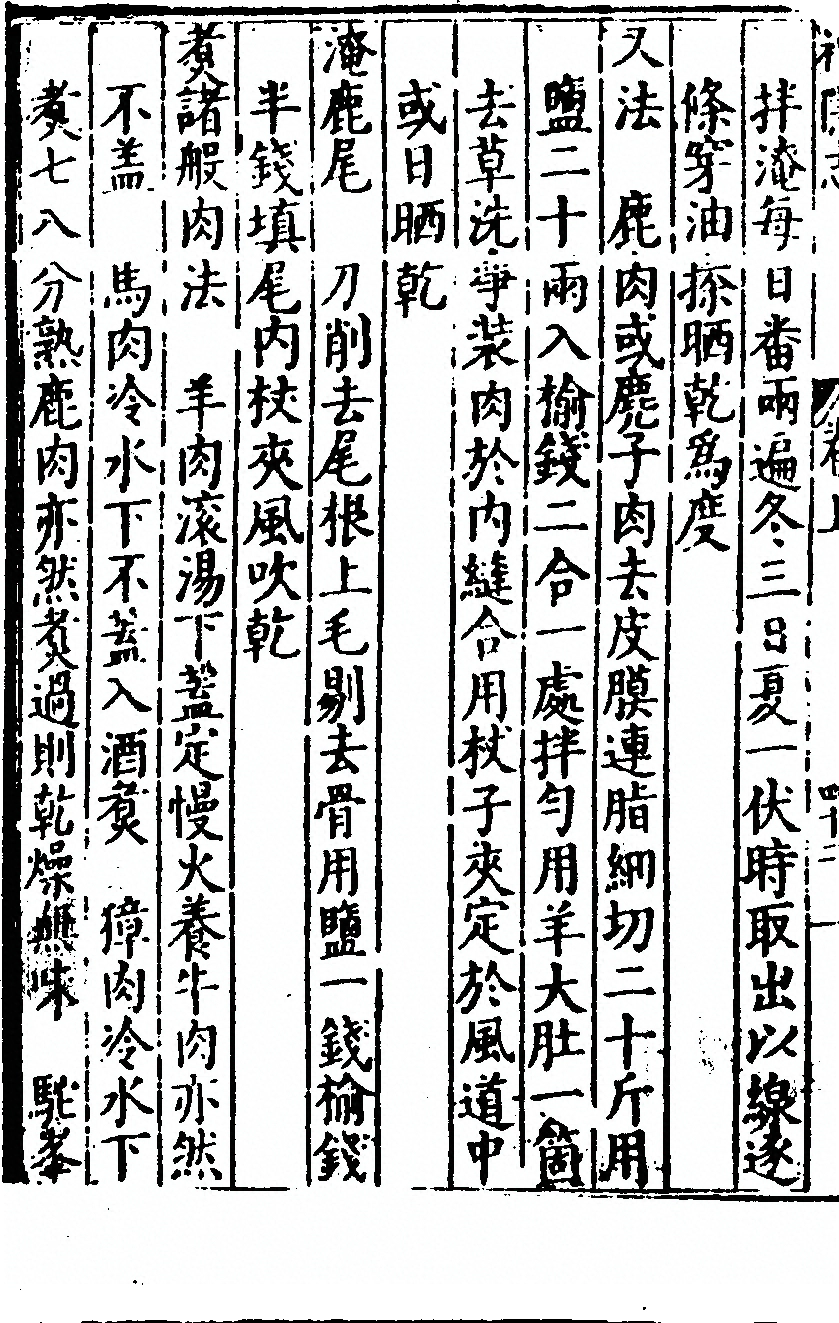 拌淹每日番兩遍冬三日夏一伏時取出以線逐
條穿油搽晒乾爲度
又法　鹿肉或麂子肉去皮膜連脂細切二十斤用
鹽二十兩入榆錢二合一處拌勻用羊大肚一箇
去草洗爭装肉於内縫合用杖子夾定於風道中
或日晒乾
淹鹿尾　刀削去尾根上毛剔去骨用鹽一錢榆錢
半錢填尾内杖夾風吹乾
煑諸般肉法　羊肉滚湯下葢定慢火養牛肉亦然
不盖　馬肉冷水下不葢入酒煑　獐肉冷水下
煑七八分熟鹿肉亦然煑過則乾燥無味　駝峯